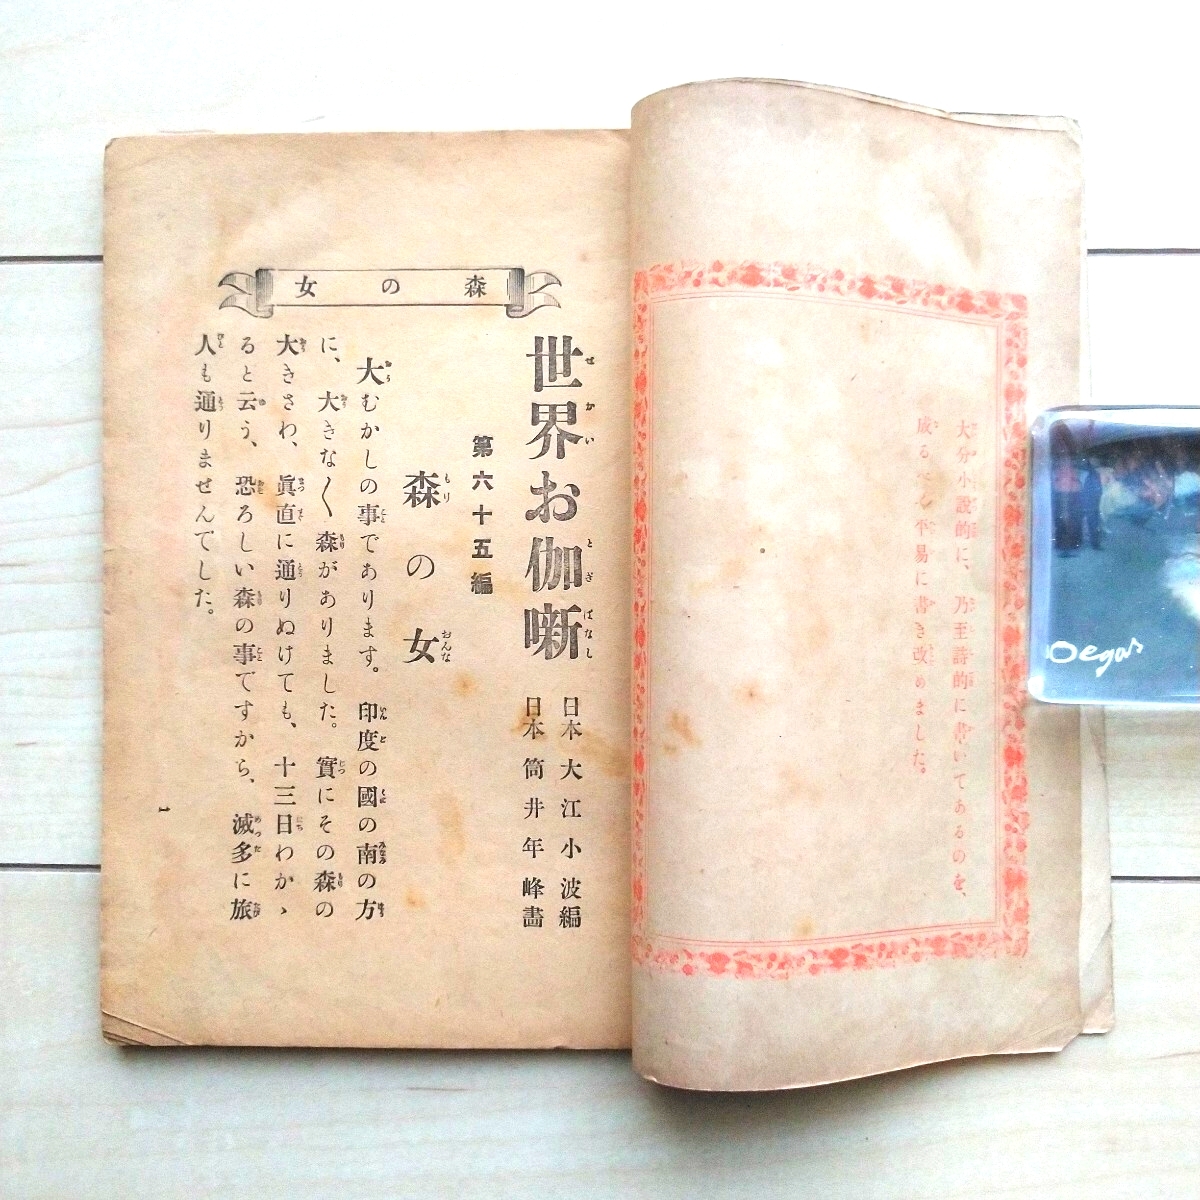 大分小說的に、乃至詩的に書いてあるのを、
成る 平易に書き改めました。
森の女
世界お伽噺
第六十五編
日本 大江小波編
日本 筒井年峰畵
森の女
大むかしの事であります。印度の國の南の方
に、大きな〱森がありました。實にその森の
大きさわ、眞直に通りぬけても、十三日わかゝ
ると云う、恐ろしい森の事ですから、滅多に旅
人も通りませんでした。
1
Degas